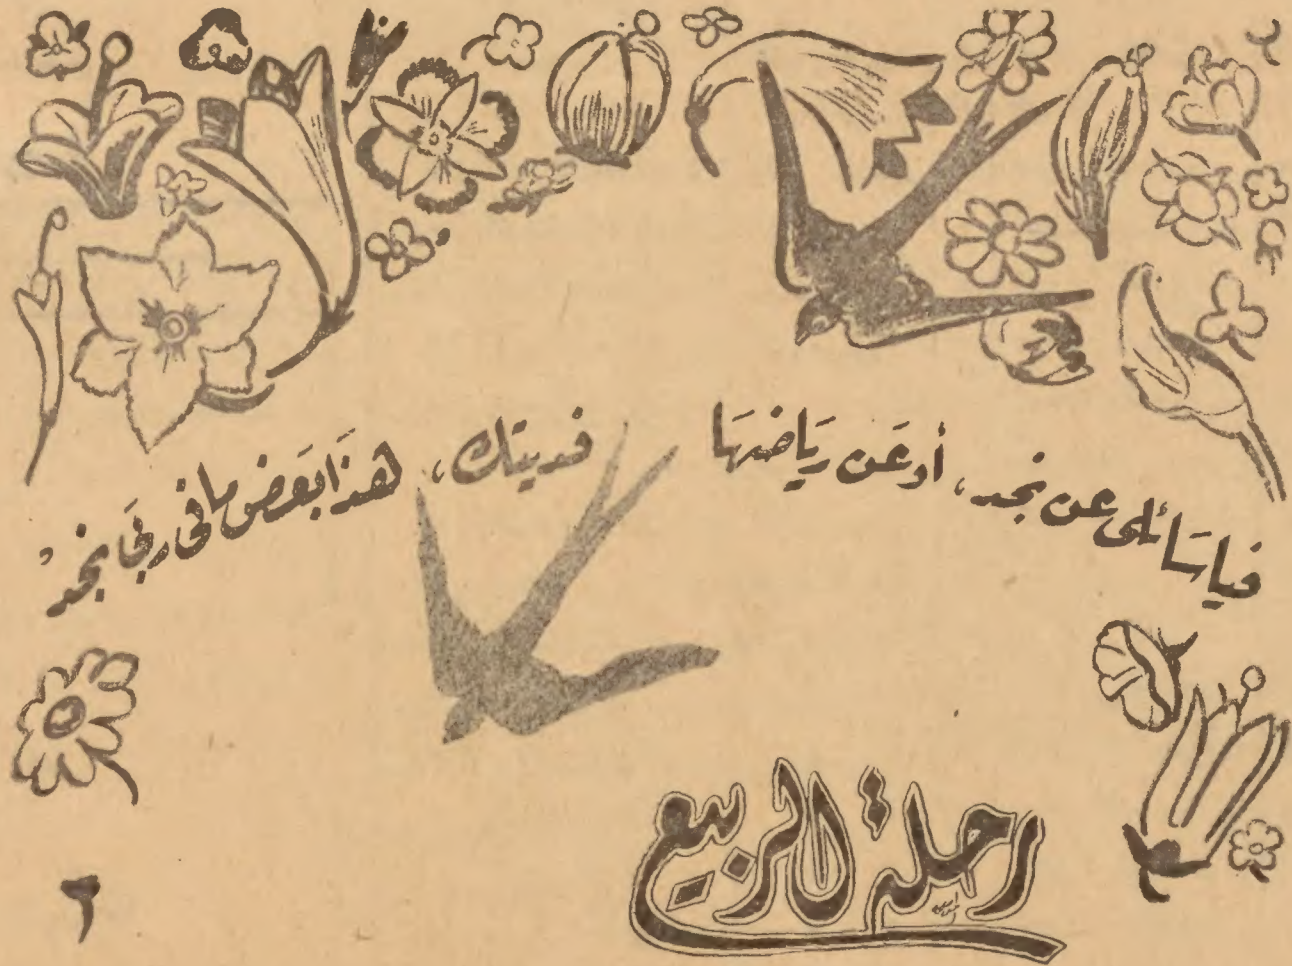 فيا سَائلى عن نجد، أو عَن رَياضهَا
فديتك، هذا بَعَض ما فى ربَى نجد
رحلة الربيع
٢